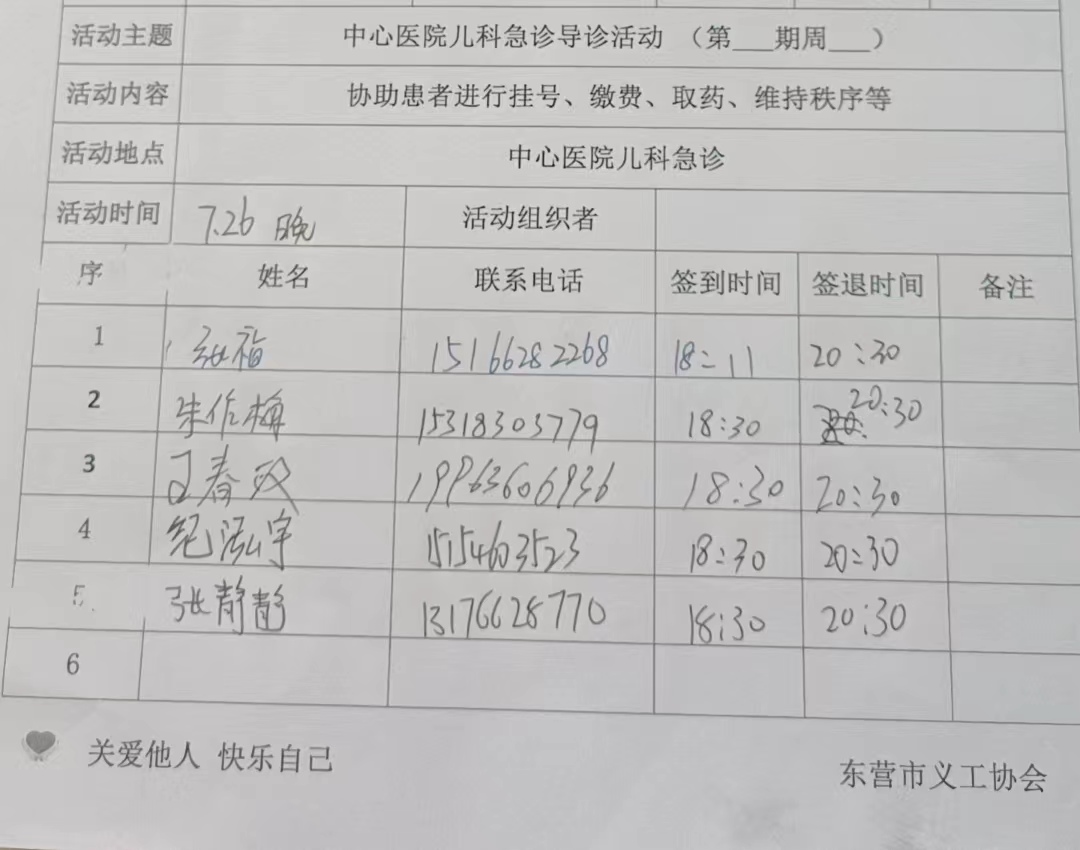 活动主题 中心医院儿科急诊导诊活动 （第___期周___）
活动内容 协助患者进行挂号、缴费、取药、维持秩序等
活动地点 中心医院儿科急诊
活动时间 7.26 晚 活动组织者
序 姓名 联系电话 签到时间 签退时间 备注
1 张福 15166282268 18:11 20:30
2 朱作梅 15318303779 18:30 20:30
3 王春双 19963606936 18:30 20:30
4 纪泓宇 15154603523 18:30 20:30
5 张静静 13176628770 18:30 20:30
6
关爱他人 快乐自己
东营市义工协会